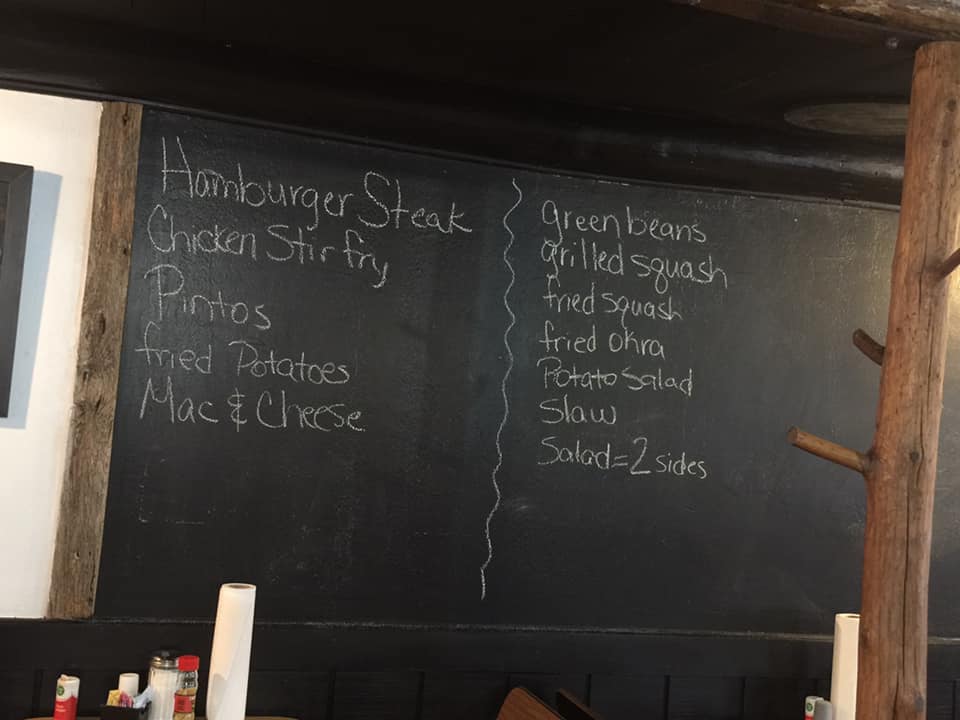 Hamburger Steak
Chicken Stir fry
Pintos
fried Potatoes
Mac & Cheese
green beans
grilled squash
fried squash
fried okra
Potato Salad
Slaw
Salad=2 sides